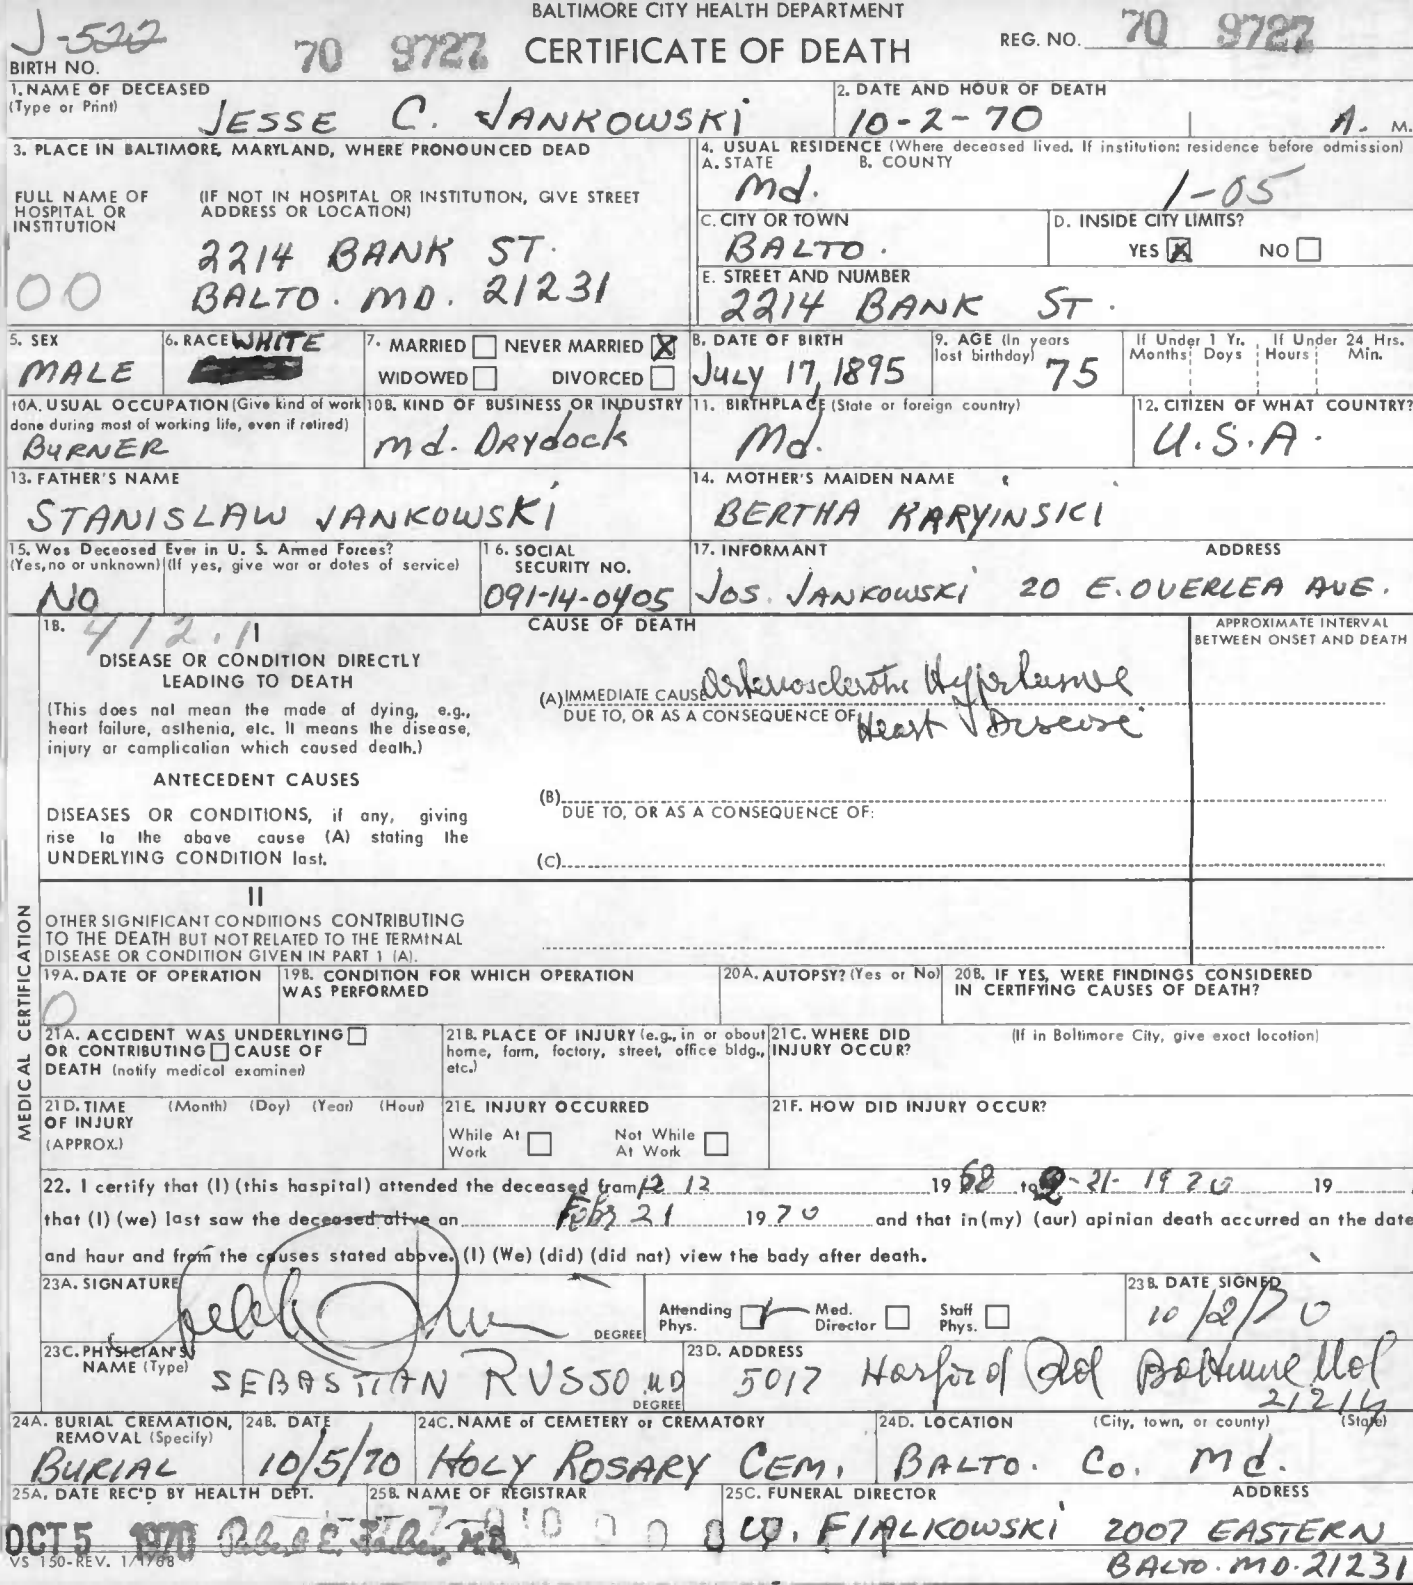 BALTIMORE CITY HEALTH DEPARTMENT
J-522
70 9727
CERTIFICATE OF DEATH
REG. NO. 70 9727
BIRTH NO.
1. NAME OF DECEASED
(Type or Print)
JESSE C. JANKOWSKI
2. DATE AND HOUR OF DEATH
10-2-70 A. M.
3. PLACE IN BALTIMORE, MARYLAND, WHERE PRONOUNCED DEAD
FULL NAME OF
HOSPITAL OR
INSTITUTION
(IF NOT IN HOSPITAL OR INSTITUTION, GIVE STREET
ADDRESS OR LOCATION)
2214 BANK ST.
BALTO. MD. 21231
00
4. USUAL RESIDENCE (Where deceased lived. If institution: residence before admission)
A. STATE B. COUNTY
Md. 1-05
C. CITY OR TOWN
BALTO.
D. INSIDE CITY LIMITS?
YES X NO
E. STREET AND NUMBER
2214 BANK ST.
5. SEX
MALE
6. RACE WHITE
7. MARRIED NEVER MARRIED X
WIDOWED DIVORCED
8. DATE OF BIRTH
July 17, 1895
9. AGE (In years
last birthday)
75
If Under 1 Yr. If Under 24 Hrs.
Months Days Hours Min.
10A. USUAL OCCUPATION (Give kind of work
done during most of working life, even if retired)
BURNER
10B. KIND OF BUSINESS OR INDUSTRY
Md. DRydock
11. BIRTHPLACE (State or foreign country)
Md.
12. CITIZEN OF WHAT COUNTRY?
U.S.A.
13. FATHER'S NAME
STANISLAW JANKOWSKI
14. MOTHER'S MAIDEN NAME
BERTHA KARYINSKI
15. Was Deceased Ever in U. S. Armed Forces?
(Yes, no or unknown) (If yes, give war or dates of service)
NO
16. SOCIAL
SECURITY NO.
091-14-0405
17. INFORMANT ADDRESS
JOS. JANKOWSKI 20 E. OVERLEA AVE.
18. 412.1
I
DISEASE OR CONDITION DIRECTLY
LEADING TO DEATH
(This does not mean the mode of dying, e.g.,
heart failure, asthenia, etc. It means the disease,
injury or complication which caused death.)
ANTECEDENT CAUSES
DISEASES OR CONDITIONS, if any, giving
rise to the above cause (A) stating the
UNDERLYING CONDITION last.
CAUSE OF DEATH
APPROXIMATE INTERVAL
BETWEEN ONSET AND DEATH
(A) IMMEDIATE CAUSE Arteriosclerotic Hypertensive
DUE TO, OR AS A CONSEQUENCE OF Heart Disease
(B)
DUE TO, OR AS A CONSEQUENCE OF:
(C)
II
OTHER SIGNIFICANT CONDITIONS CONTRIBUTING
TO THE DEATH BUT NOT RELATED TO THE TERMINAL
DISEASE OR CONDITION GIVEN IN PART 1 (A).
MEDICAL CERTIFICATION
19A. DATE OF OPERATION
0
19B. CONDITION FOR WHICH OPERATION
WAS PERFORMED
20A. AUTOPSY? (Yes or No)
20B. IF YES, WERE FINDINGS CONSIDERED
IN CERTIFYING CAUSES OF DEATH?
21A. ACCIDENT WAS UNDERLYING
OR CONTRIBUTING CAUSE OF
DEATH (notify medical examiner)
21B. PLACE OF INJURY (e.g., in or about
home, farm, factory, street, office bldg.,
etc.)
21C. WHERE DID
INJURY OCCUR?
(If in Baltimore City, give exact location)
21D. TIME (Month) (Day) (Year) (Hour)
OF INJURY
(APPROX.)
21E. INJURY OCCURRED
While At
Work
Not While
At Work
21F. HOW DID INJURY OCCUR?
22. I certify that (I) (this hospital) attended the deceased from 12 12 1968 to 2-21-1970 19
that (I) (we) last saw the deceased alive on Feb 21 1970 and that in (my) (our) opinion death occurred on the date
and hour and from the causes stated above. (I) (We) (did) (did not) view the body after death.
23A. SIGNATURE
DEGREE
Attending
Phys.
Med.
Director
Staff
Phys.
23B. DATE SIGNED
10/2/70
23C. PHYSICIAN'S
NAME (Type)
SEBASTIAN RUSSO MD
DEGREE
23D. ADDRESS
5017 Harford Rd Baltimore Md
21214
24A. BURIAL CREMATION,
REMOVAL (Specify)
BURIAL
24B. DATE
10/5/70
24C. NAME of CEMETERY or CREMATORY
HOLY ROSARY CEM.
24D. LOCATION (City, town, or county) (State)
BALTO. Co. Md.
25A. DATE REC'D BY HEALTH DEPT.
OCT 5 1970
25B. NAME OF REGISTRAR
Robert E. Farber, M.D.
25C. FUNERAL DIRECTOR ADDRESS
W. FIALKOWSKI 2007 EASTERN
BALTO. MD. 21231
VS 150-REV. 1/1/68